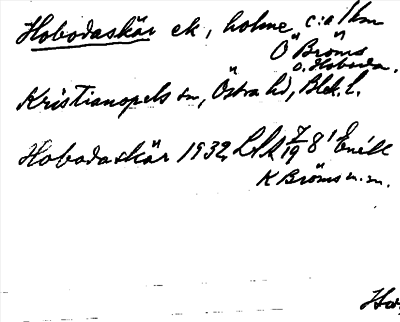 Hobodaskär ek, holme c:a 1 km
Ö Bröms
o. Hoboda.
Kristianopels sn, Östra hd, Blek. l.
Hobodaskär 1932 7/19 8' Enéll
K Bröms n.m.